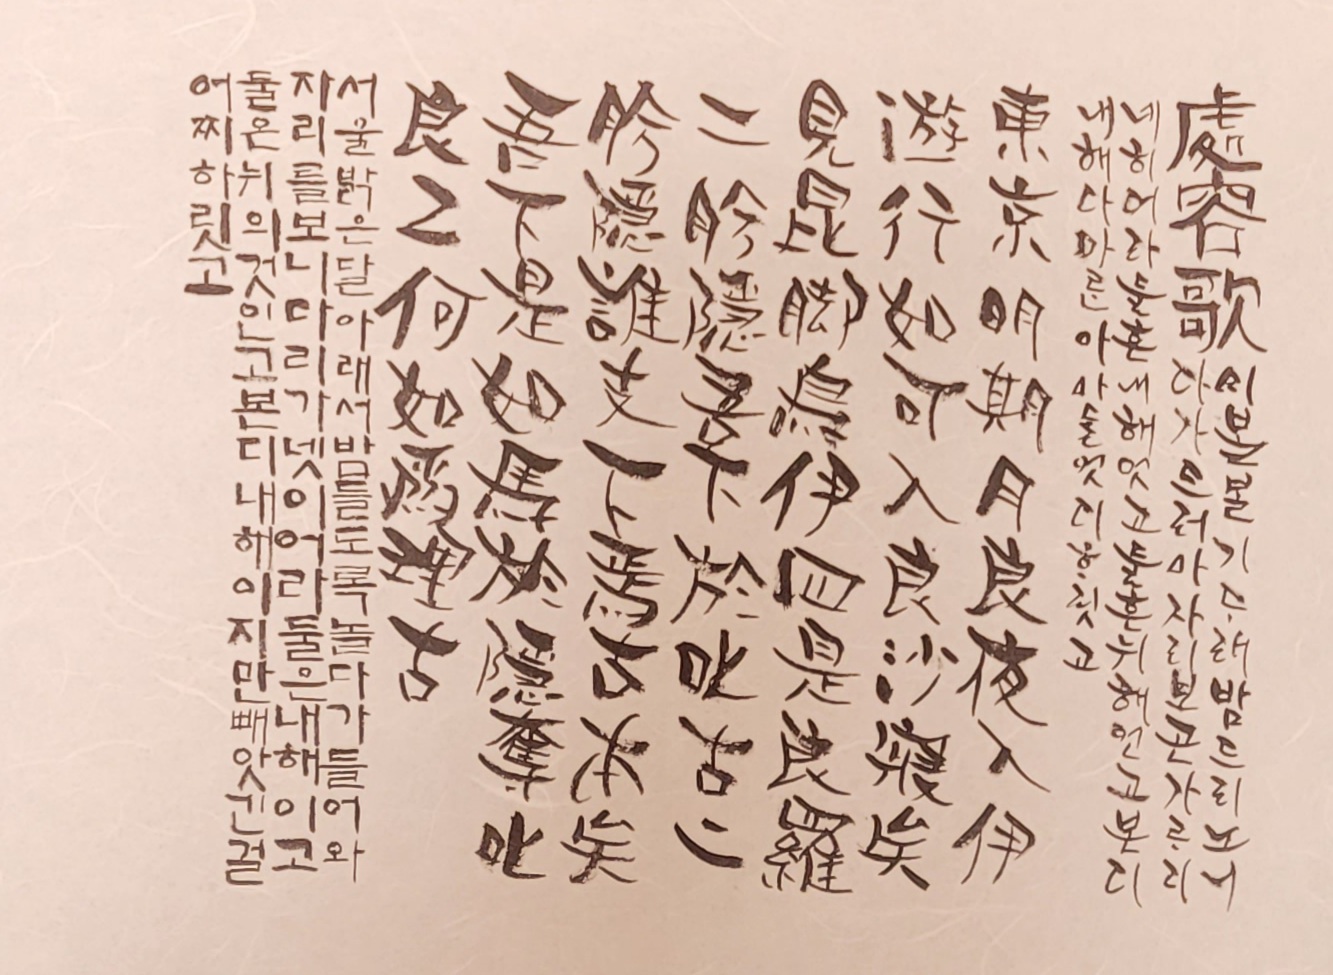 處容歌
ᄉᆡᄇᆞᆯ ᄇᆞᆯ기 ᄃᆞ래 밤드리 노니
다가 드러아 자리 보곤 가ᄅᆞ리
네히어라 둘흔 내해엇고 둘흔 뉘해언고 본디
내해다마ᄅᆞᆫ 아ᅀᅡᄂᆞᆯ 엇디ᄒᆞ릿고
東京明期月良夜入伊
遊行如可入良沙寢矣
見昆脚烏伊四是良羅
二肹隱吾下於叱古二
肹隱誰支下焉古本矣
吾下是如馬於隱奪叱
良乙何如爲理古
서울 밝은 달 아래서 밤들도록 놀다가 들어와
자리를 보니 다리가 넷이어라 둘은 내해이고
둘은 뉘의 것인고 본디 내해이지만 빼앗긴 걸
어찌하릿고